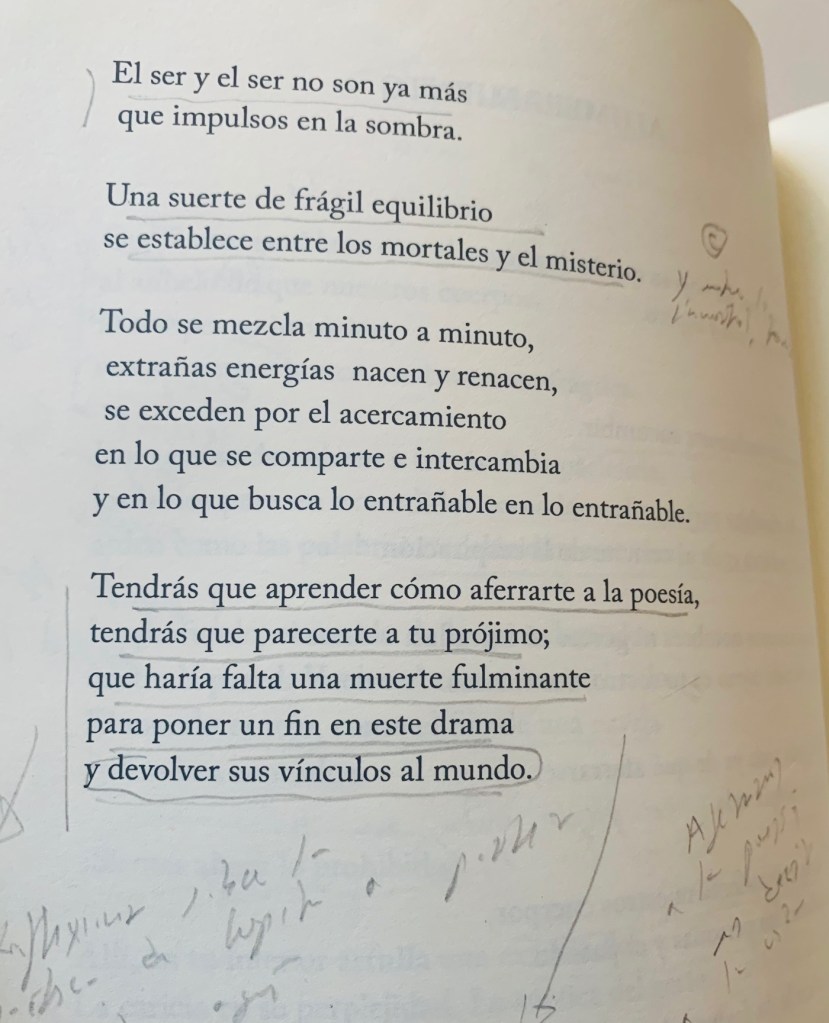 El ser y el ser no son ya más
que impulsos en la sombra.
Una suerte de frágil equilibrio
se establece entre los mortales y el misterio.
Todo se mezcla minuto a minuto,
extrañas energías nacen y renacen,
se exceden por el acercamiento
en lo que se comparte e intercambia
y en lo que busca lo entrañable en lo entrañable.
Tendrás que aprender cómo aferrarte a la poesía,
tendrás que parecerte a tu prójimo;
que haría falta una muerte fulminante
para poner un fin en este drama
y devolver sus vínculos al mundo.